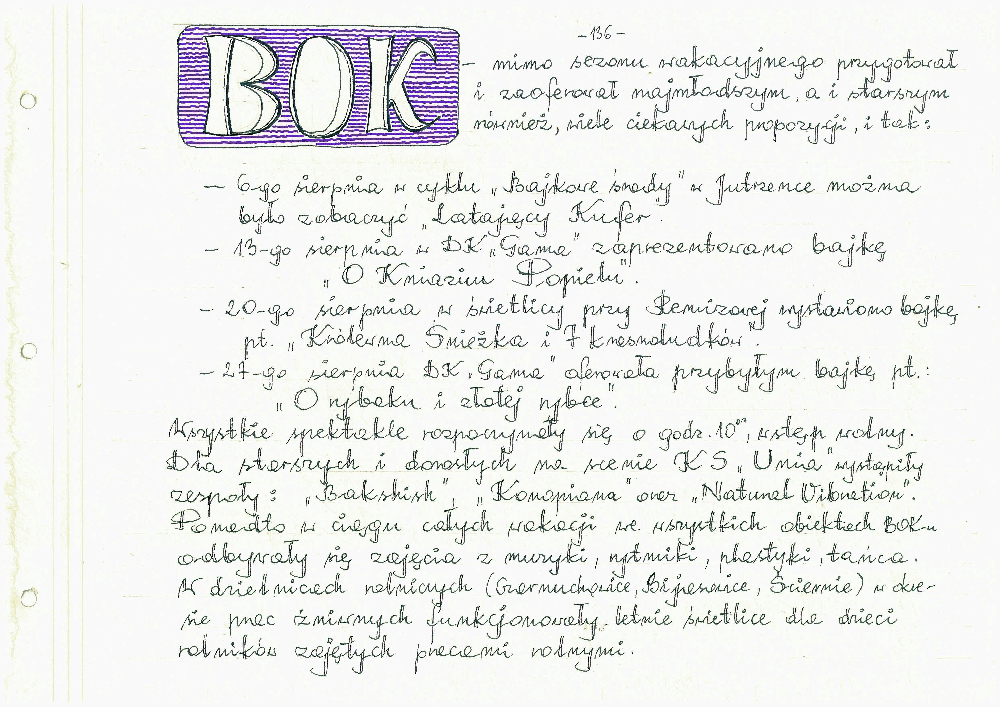 -136-
BOK - mimo sezonu wakacyjnego przygotował
i zaoferował najmłodszym, a i starszym
również, wiele ciekawych propozycji, i tak:
- 6-go sierpnia w cyklu „Bajkowe środy" w Jutrzence można
było zobaczyć „Latający Kufer".
- 13-go sierpnia w DK „Gama" zaprezentowano bajkę
„O Kniaziu Popielu".
- 20-go sierpnia w świetlicy przy Remizowej wystawiono bajkę
pt. „Królewna Śnieżka i 7 krasnoludków".
- 27-go sierpnia DK „Gama" oferowała przybyłym bajkę pt.:
„O rybaku i złotej rybce".
Wszystkie spektakle rozpoczynały się o godz. 10⁰⁰, wstęp wolny.
Dla starszych i dorosłych na scenie KS „Unia" wystąpiły
zespoły: „Bakshish", „Konopiana" oraz „Natural Vibration".
Ponadto w ciągu całych wakacji we wszystkich obiektach BOK-u
odbywały się zajęcia z muzyki, rytmiki, plastyki, tańca.
W dzielnicach rolniczych (Czarnuchowice, Bijasowice, Ściernie) w okre-
sie prac żniwnych funkcjonowały letnie świetlice dla dzieci
rolników zajętych pracami rolnymi.